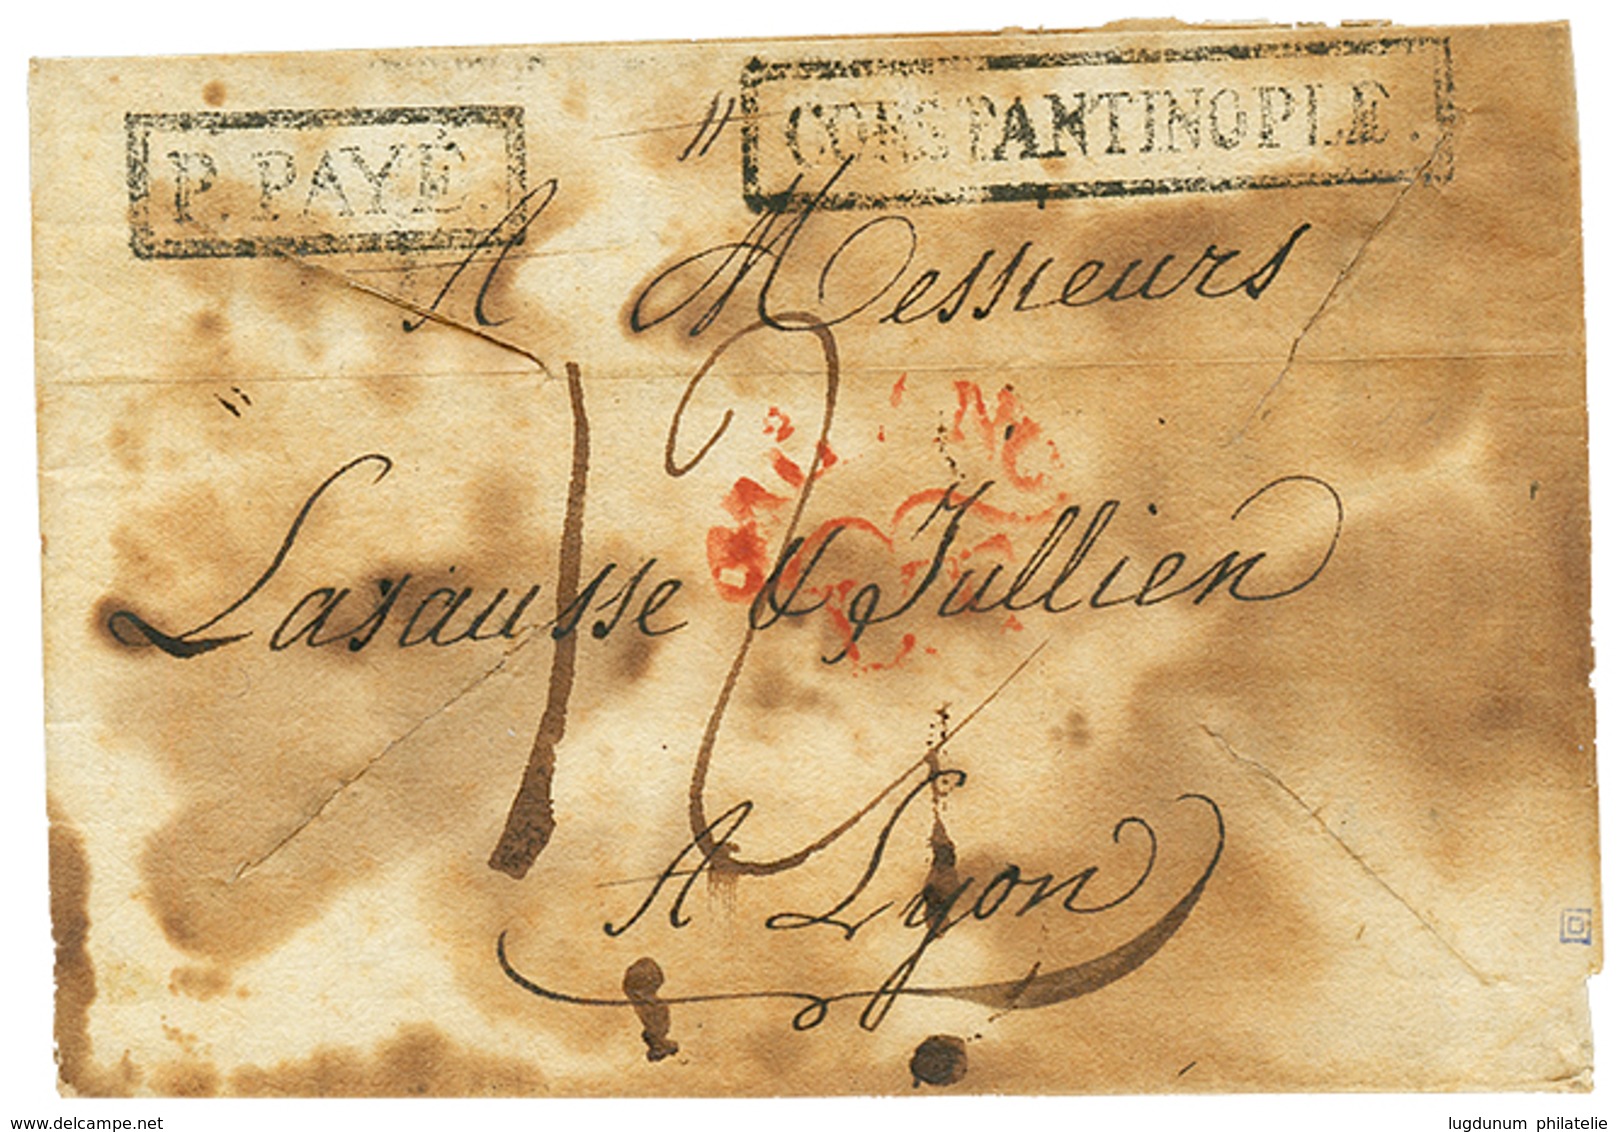 P. PAYÉ.
CONSTANTINOPLE.
A Messieurs
12
Lasausse & Jullien
A Lyon
delcampe.net
lugdunum philatelie